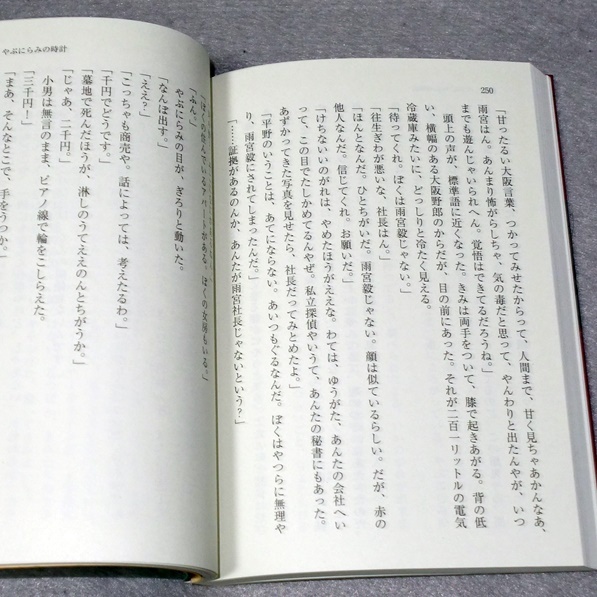 250
「甘ったるい大阪言葉、つかってみせたからって、人間まで、甘く見ちゃあかんなあ、
雨宮はん。あんまり怖がらしちゃ、気の毒だと思って、やんわりと出たんやが、いつ
までも遊んじゃいられへん。覚悟はできてるだろうね。」
頭上の声が、標準語に近くなった。きみは両手をついて、膝で起きあがる。背の低
い、横幅のある大阪野郎のからだが、目の前にあった。それが二百一リットルの電気
冷蔵庫みたいに、どっしりと冷たく見える。
「待ってくれ。ぼくは雨宮毅じゃない。」
「往生ぎわが悪いな、社長はん。」
「ほんとなんだ。ひとちがいだ。雨宮毅じゃない。顔は似ているらしい。だが、赤の
他人なんだ。信じてくれ。お願いだ。」
「けちないいのがれは、やめたほうがええな。わては、ゆうがた、あんたの会社へい
って、この目でたしかめてるんやぜ。私立探偵やいうて、あんたの秘書にもあった。
あずかってきた写真を見せたら、社長だってみとめたよ。」
「平野のいうことは、あてにならない。あいつもぐるなんだ。ぼくはやつらに無理や
り、雨宮毅にされてしまったんだ。」
「……証拠があるのんか、あんたが雨宮社長じゃないという？」
やぶにらみの時計
「ぼくの住んでいるアパートがある。ぼくの女房もいる。」
「ふん。」
やぶにらみの目が、ぎろりと動いた。
「なんぼ出す。」
「ええ？」
「こっちゃも商売や。話によっては、考えたるわ。」
「千円でどうです。」
「墓地で死んだほうが、淋しのうてええのんとちがうか。」
「じゃあ、二千円。」
小男は無言のまま、ピアノ線で輪をこしらえた。
「三千円！」
「まあ、そんなとこで、手をうつか。」